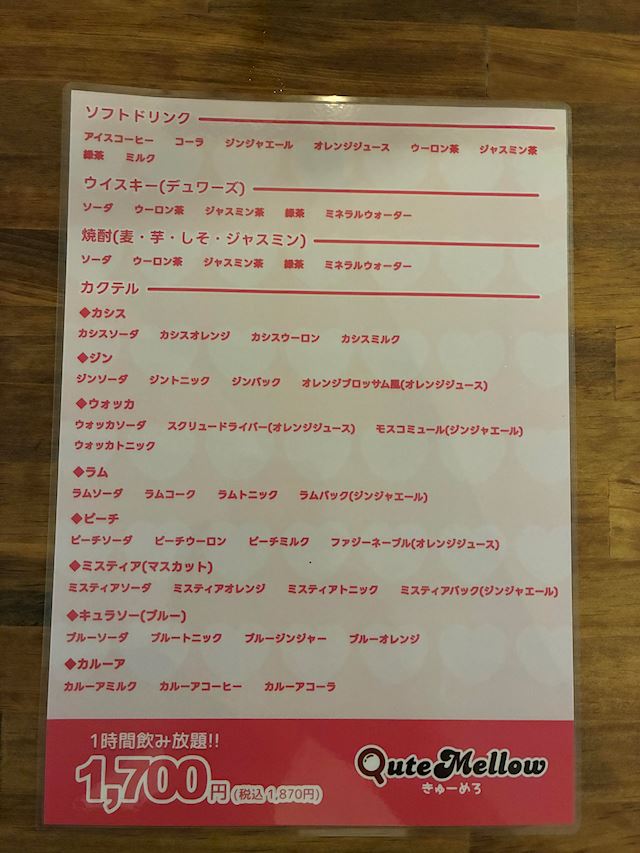 ソフトドリンク
アイスコーヒー コーラ ジンジャエール オレンジジュース ウーロン茶 ジャスミン茶
緑茶 ミルク
ウイスキー(デュワーズ)
ソーダ ウーロン茶 ジャスミン茶 緑茶 ミネラルウォーター
焼酎(麦・芋・しそ・ジャスミン)
ソーダ ウーロン茶 ジャスミン茶 緑茶 ミネラルウォーター
カクテル
◆カシス
カシスソーダ カシスオレンジ カシスウーロン カシスミルク
◆ジン
ジンソーダ ジントニック ジンバック オレンジブロッサム風(オレンジジュース)
◆ウォッカ
ウォッカソーダ スクリュードライバー(オレンジジュース) モスコミュール(ジンジャエール)
ウォッカトニック
◆ラム
ラムソーダ ラムコーク ラムトニック ラムバック(ジンジャエール)
◆ピーチ
ピーチソーダ ピーチウーロン ピーチミルク ファジーネーブル(オレンジジュース)
◆ミスティア(マスカット)
ミスティアソーダ ミスティアオレンジ ミスティアトニック ミスティアバック(ジンジャエール)
◆キュラソー(ブルー)
ブルーソーダ ブルートニック ブルージンジャー ブルーオレンジ
◆カルーア
カルーアミルク カルーアコーヒー カルーアコーラ
1時間飲み放題!!
1,700円(税込 1,870円)
Qute Mellow
きゅーめろ